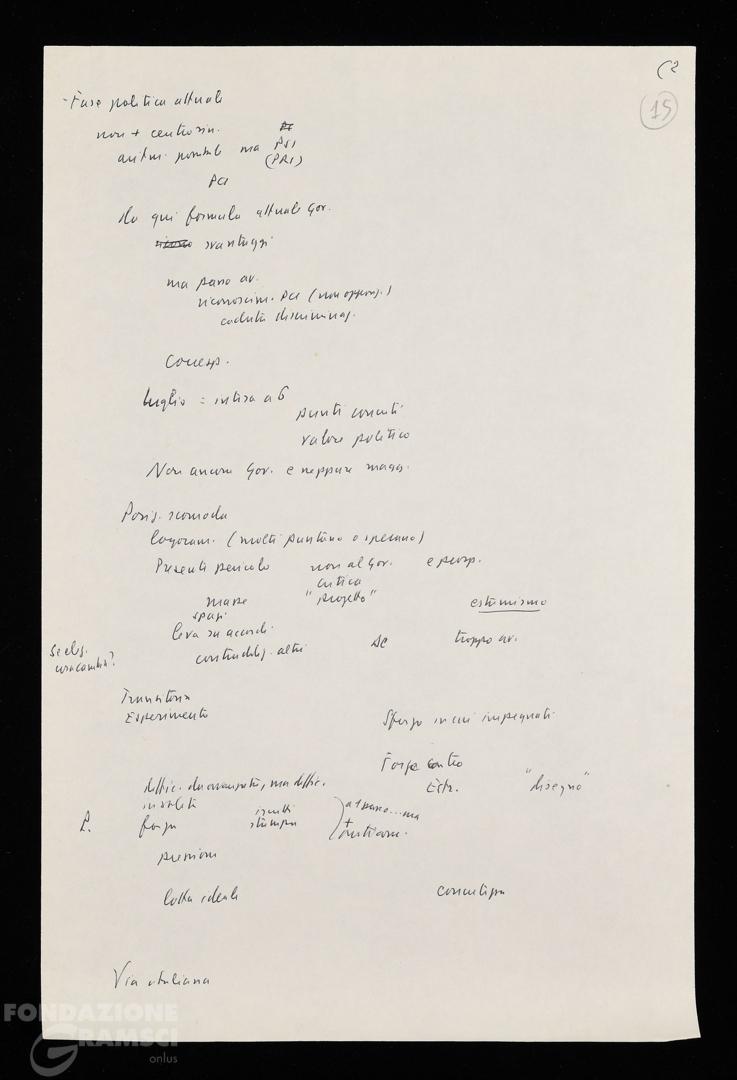 (2
15
- Fase politica attuale
non + centrosin.
aritm. possibile ma PSI
(PRI)
PCI
da qui formula attuale Gov.
svantaggi
ma passo av.
riconoscim. PCI (non oppos.)
caduta discriminaz.
Conseg.
luglio = intesa a 6
punti concreti
valore politico
Non ancora Gov. e neppure magg.
Posiz. scomoda
logoram. (molti puntano o sperano)
Presenti pericolo non al Gov. e prosp.
critica
masse "progetto" estremismo
spazi
leva su accordi DC troppo av.
contraddiz. altri
Se elez.
cosa cambia?
Transitoria
Esperimento Sforzo in cui impegnati
Forze contro
diffic. da avanzata, ma diffic. Estr. "disegno"
P. forza stampa
+
pressioni
lotta ideale
Via italiana
FONDAZIONE
GRAMSCI
onlus